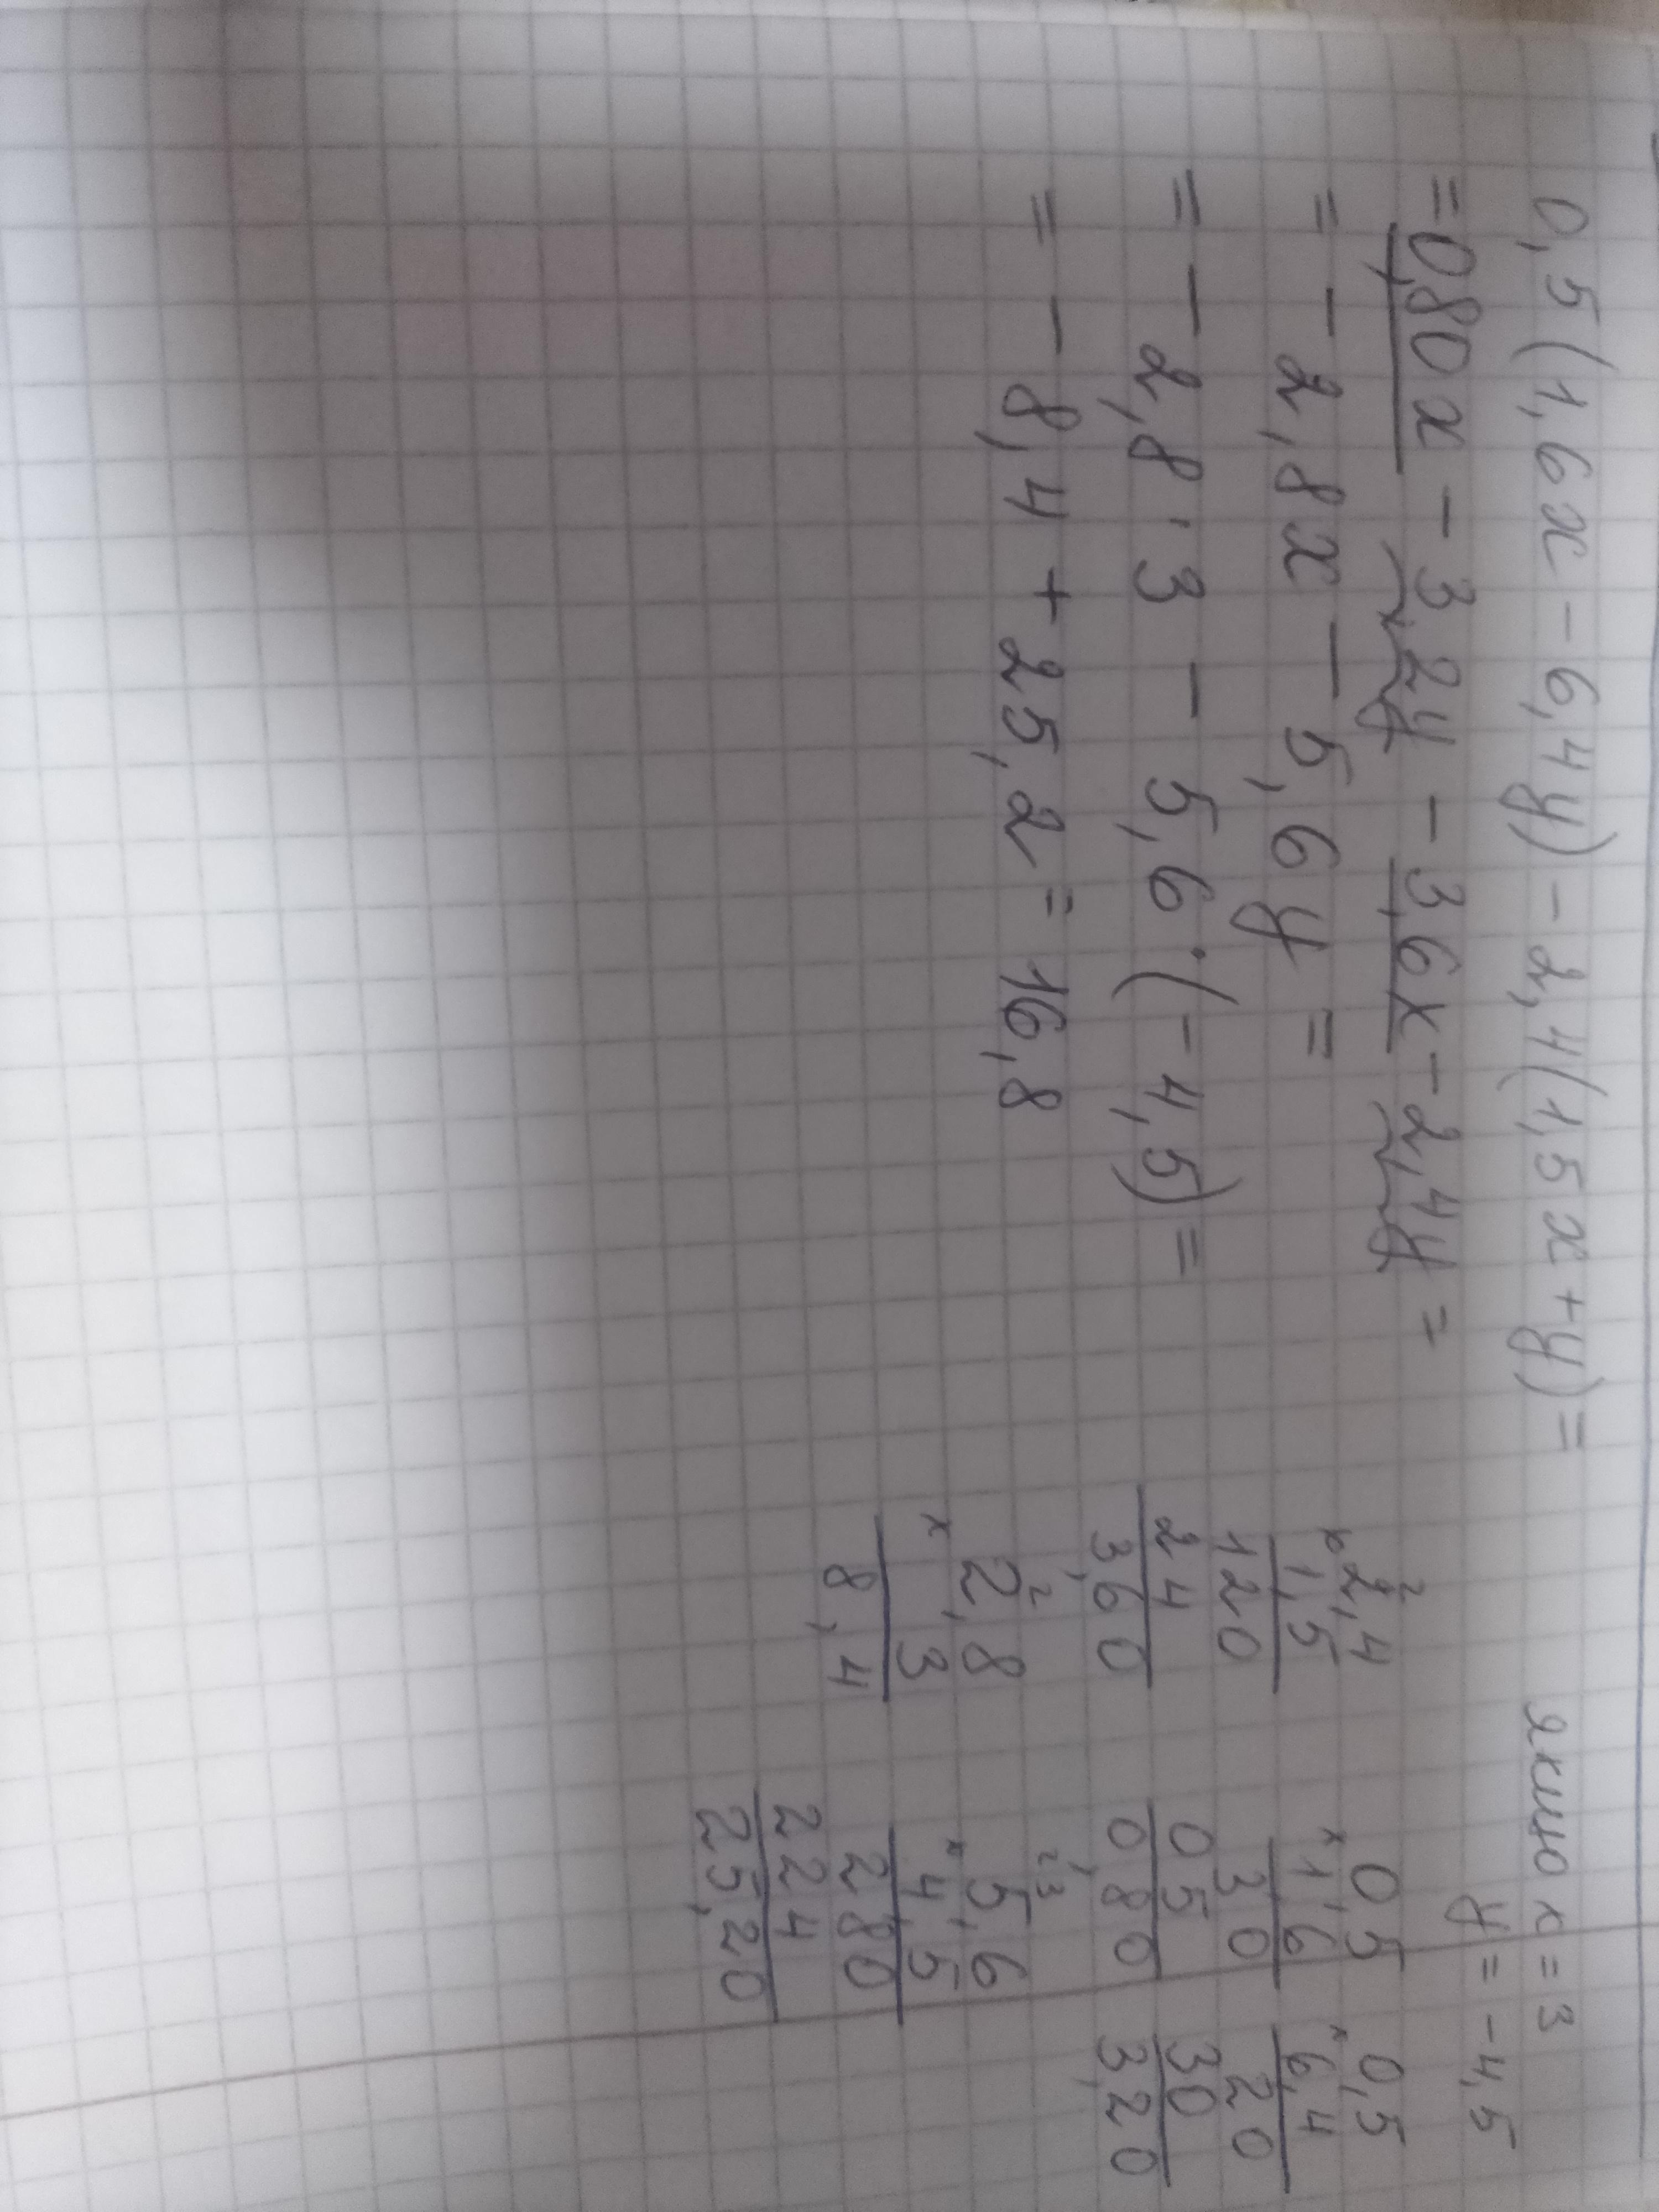 0,5(1,6x-6,4y)-2,4(1,5x+y)=
якщо x=3
y=-4,5
=0,80x-3,2y-3,6x-2,4y=
=-2,8x-5,6y=
=-2,8·3-5,6·(-4,5)=
=-8,4+25,2=16,8
2
2,4
×1,5
120
24
3,60
0 5
×1,6
3 0
0 5
0,80
0,5
×6,4
20
30
3,20
2
2,8
× 3
8,4
23
5,6
×4,5
280
224
25,20